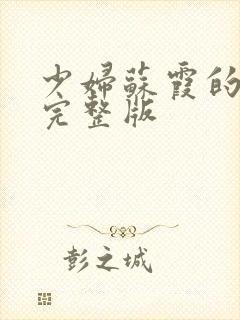 少婦蘇霞的
完整版
彭之城